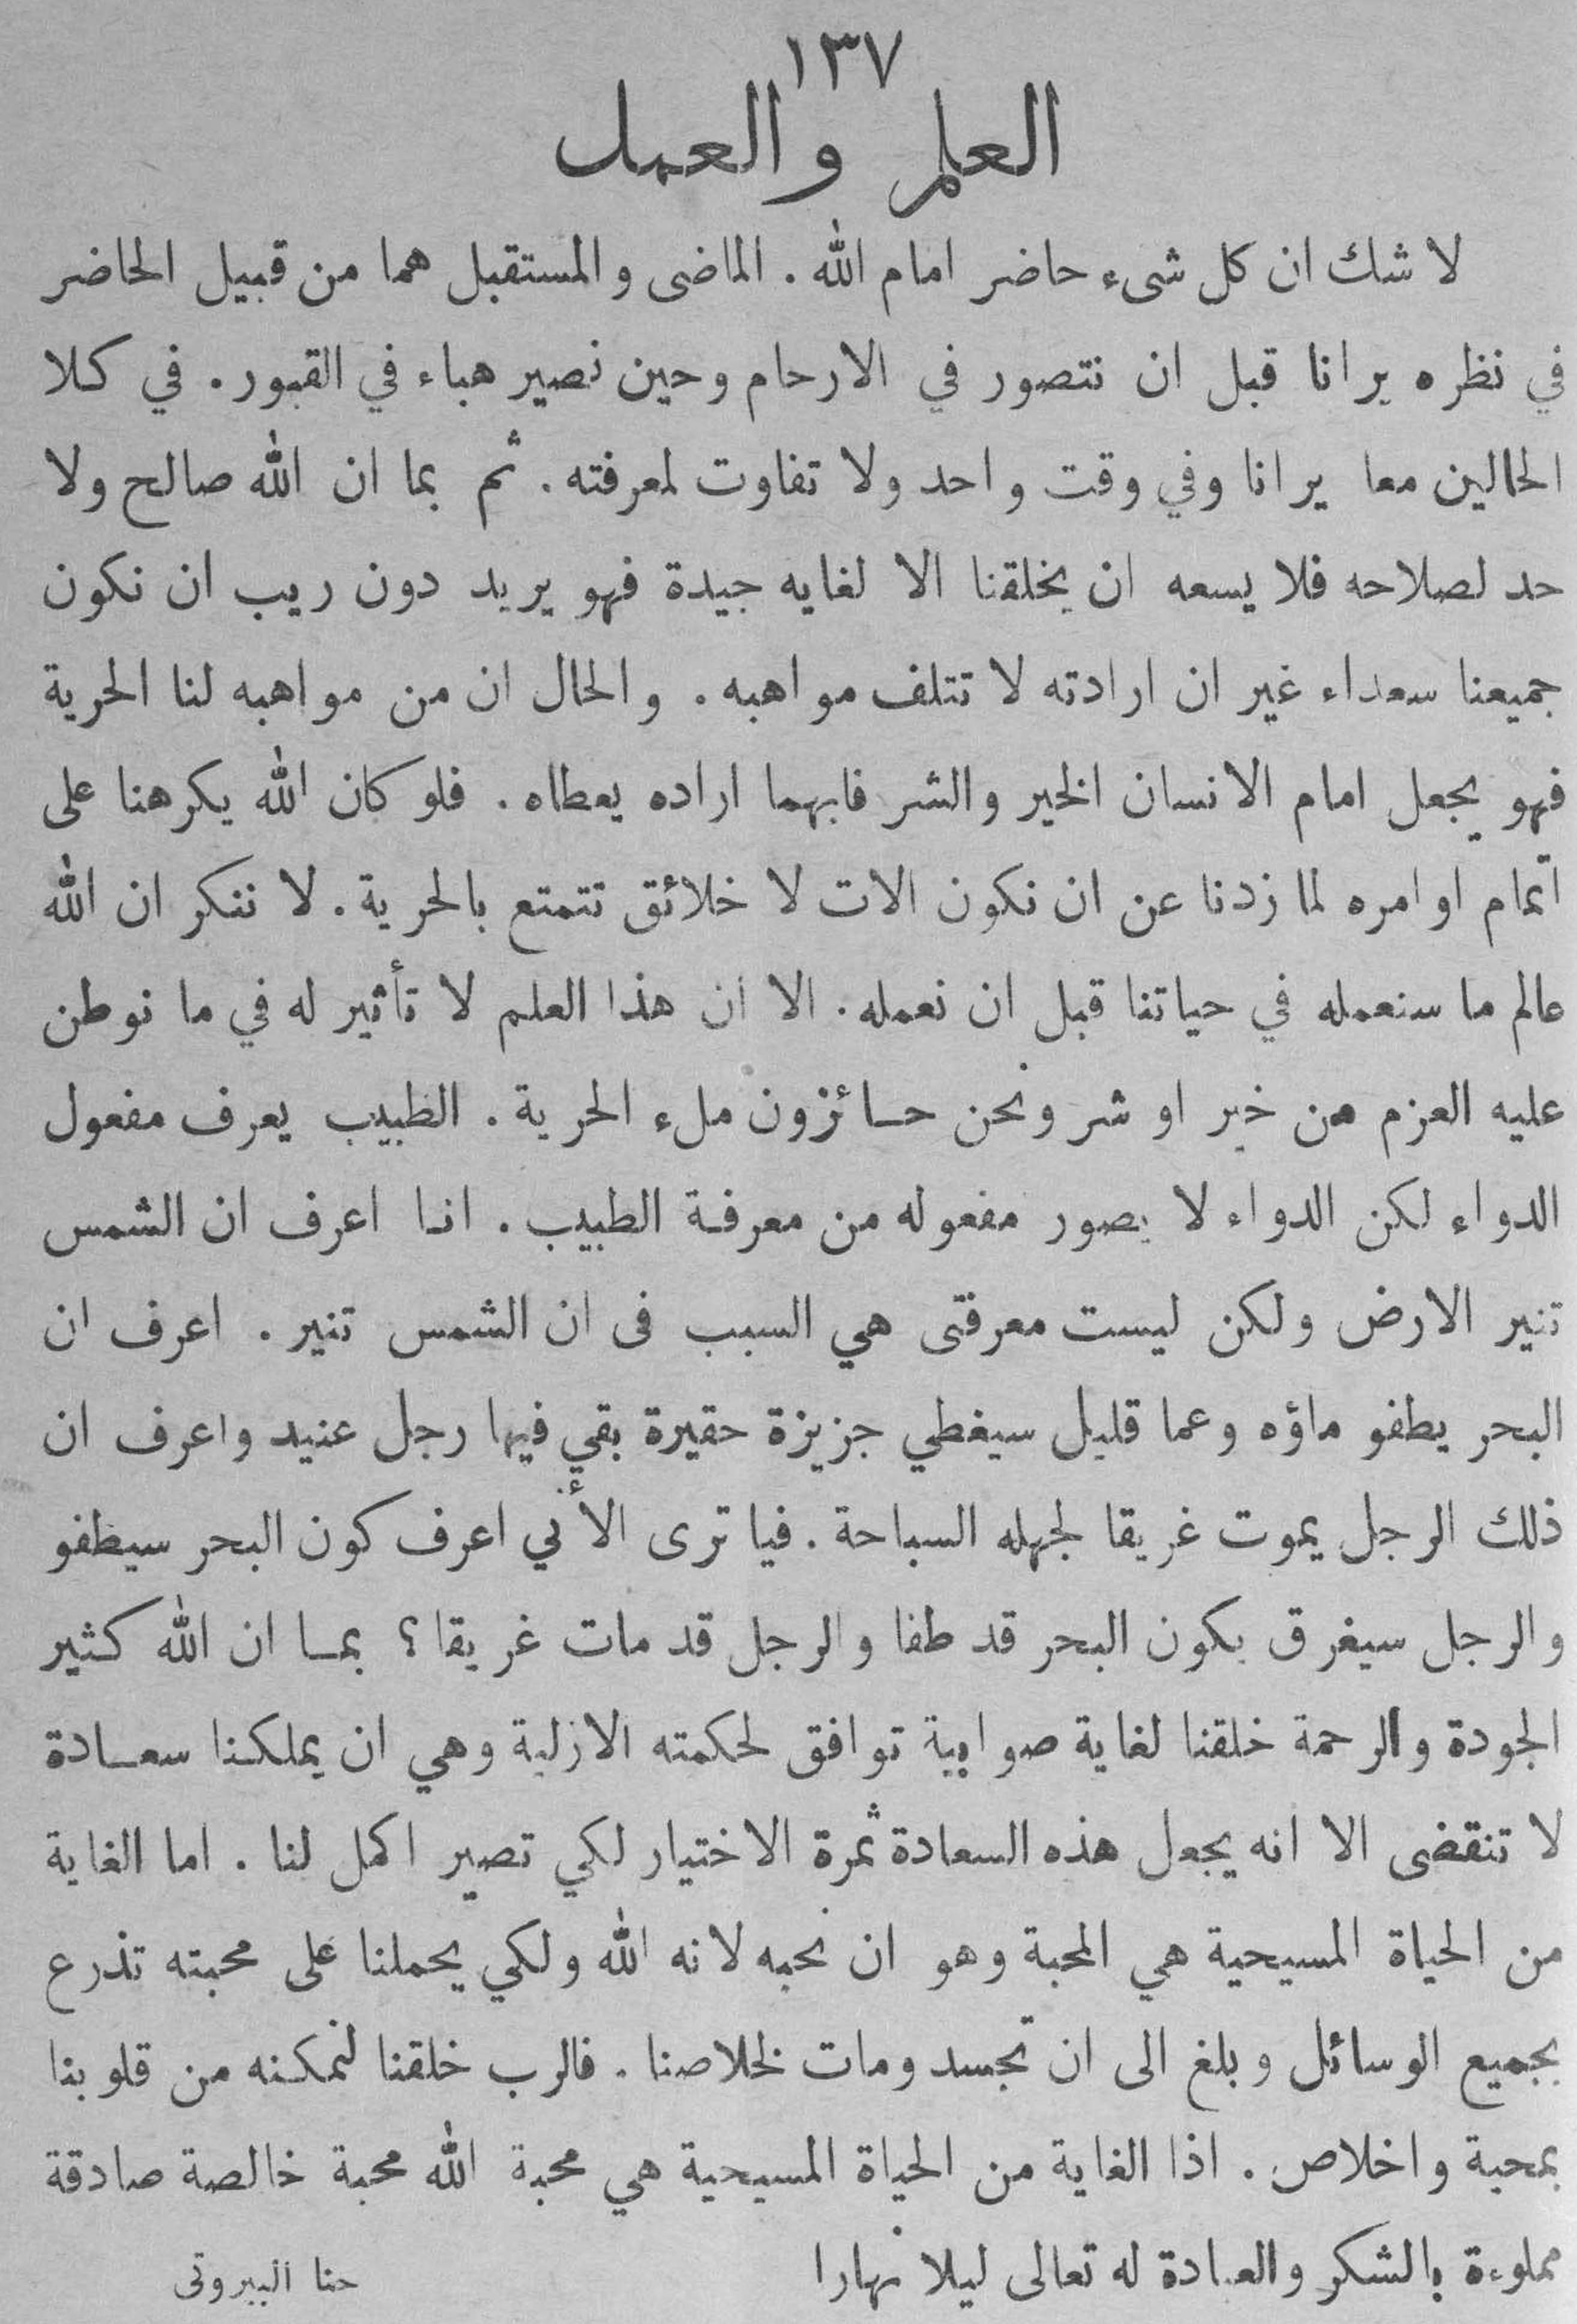 ١٣٧
العلم والعمل
لا شك ان كل شىء حاضر امام الله . الماضى والمستقبل هما من قبيل الحاضر
في نظره يرانا قبل ان نتصور في الارحام وحين نصير هباء في القبور . في كلا
الحالين معا يرانا وفي وقت واحد ولا تفاوت لمعرفته . ثم بما ان الله صالح ولا
حد لصلاحه فلا يسعه ان يخلقنا الا لغايه جيدة فهو يريد دون ريب ان نكون
جميعنا سعداء غير ان ارادته لا تتلف مواهبه . والحال ان من مواهبه لنا الحرية
فهو يجعل امام الانسان الخير والشر فايهما اراده يعطاه . فلو كان الله يكرهنا على
اتمام اوامره لما زدنا عن ان نكون الات لا خلائق تتمتع بالحرية . لا ننكر ان الله
عالم ما سنعمله في حياتنا قبل ان نعمله . الا ان هذا العلم لا تأثير له في ما نوطن
عليه العزم من خير او شر ونحن حائزون ملء الحرية . الطبيب يعرف مفعول
الدواء لكن الدواء لا يصور مفعوله من معرفة الطبيب . انا اعرف ان الشمس
تنير الارض ولكن ليست معرقتى هي السبب فى ان الشمس تنير . اعرف ان
البحر يطفو ماؤه وعما قليل سيغطي جزيزة حقيرة بقي فيها رجل عنيد واعرف ان
ذلك الرجل يموت غريقا لجهله السباحة . فيا ترى الأني اعرف كون البحر سيطفو
والرجل سيغرق يكون البحر قد طفا والرجل قد مات غريقا ؟ بما ان الله كثير
الجودة والرحمة خلقنا لغاية صوابية توافق لحكمته الازلية وهي ان يملكنا سعادة
لا تنقضى الا انه يجعل هذه السعادة ثمرة الاختيار لكي تصير اكمل لنا . اما الغاية
من الحياة المسيحية هي المحبة وهو ان نحبه لانه الله ولكي يحملنا على محبته تذرع
بجميع الوسائل وبلغ الى ان تجسد ومات لخلاصنا . فالرب خلقنا لنمكنه من قلوبنا
بمحبة واخلاص . اذا الغاية من الحياة المسيحية هي محبة الله محبة خالصة صادقة
مملوءة بالشكر والعبادة له تعالى ليلا نهارا حنا البيروتى